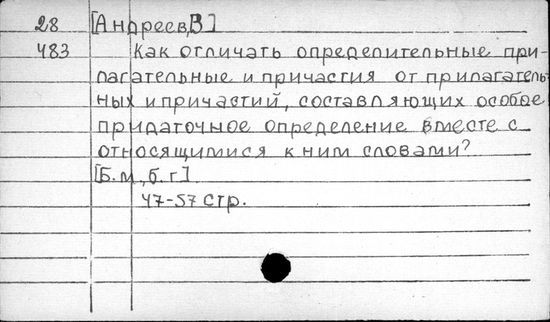 28 [Андреев, В]
483 Как отличать определительные при-
лагательные и причастия от прилагатель-
ных и причастий, составляющих особое
придаточное определение вместе с
относящимися к ним словами?
[Б.м., б.г]
47-57 стр.